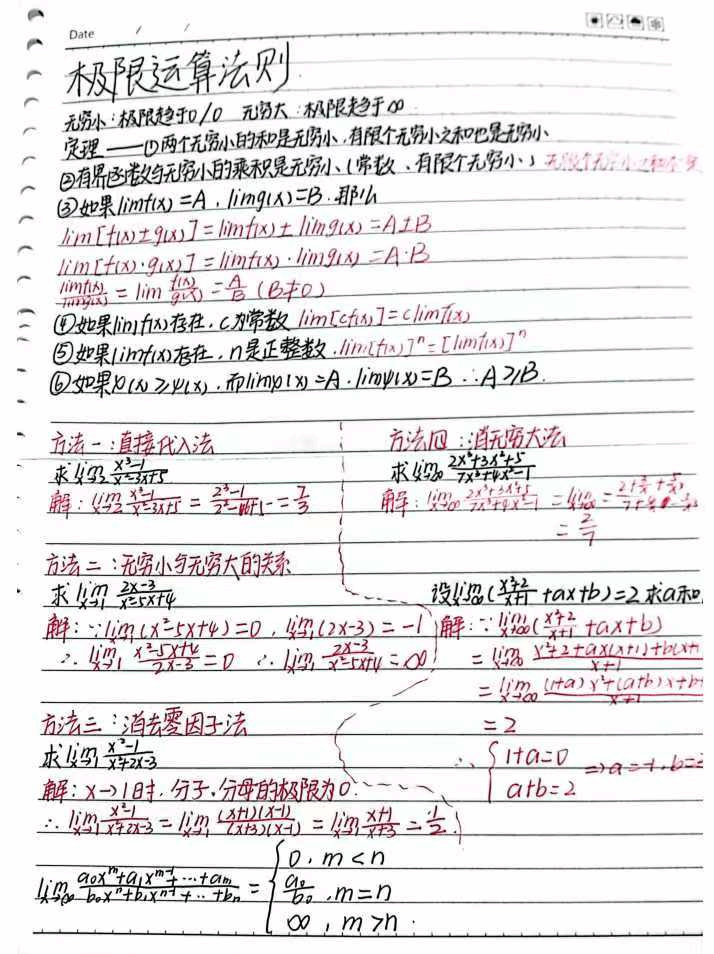 Date / /
极限运算法则
无穷小:极限趋于0/0 无穷大:极限趋于∞
定理——①两个无穷小的和是无穷小,有限个无穷小之和也是无穷小
②有界函数与无穷小的乘积是无穷小(常数、有限个无穷小)
③如果limf(x)=A,limg(x)=B.那么
lim[f(x)±g(x)]=limf(x)±limg(x)=A±B
lim[f(x)·g(x)]=limf(x)·limg(x)=A·B
limf(x)/limg(x)=lim f(x)/g(x)=A/B(B≠0)
④如果limf(x)存在,c为常数 lim[cf(x)]=climf(x)
⑤如果limf(x)存在,n是正整数.lim[f(x)]ⁿ=[limf(x)]ⁿ
⑥如果φ(x)≥ψ(x),而limφ(x)=A.limψ(x)=B ∴A≥B.
方法一:直接代入法
求lim x→2 (x³-1)/(x²-3x+5)
解:lim x→2 (x³-1)/(x²-3x+5)=(2³-1)/=7/3
方法二:无穷小与无穷大的关系
求lim x→1 (2x-3)/(x²-5x+4)
解:∵lim x→1 (x²-5x+4)=0,lim x→1 (2x-3)=-1
∴lim x→1 (x²-5x+4)/(2x-3)=0 ∴lim x→1 (2x-3)/(x²-5x+4)=∞
方法三:消去零因子法
求lim x→1 (x²-1)/(x²+2x-3)
解:x→1时,分子,分母的极限为0.
∴lim x→1 (x²-1)/(x²+2x-3)=lim x→1 (x+1)(x-1)/(x+3)(x-1)=lim x→1 (x+1)/(x+3)=1/2.
方法四:消无穷大法
求lim x→∞ (2x³+3x²+5)/(7x³+4x²-1)
解:lim x→∞ (2x³+3x²+5)/(7x³+4x²-1)=lim x→∞
=2/7
设lim x→∞ ((x²+2)/(x+1)+ax+b)=2 求a和
解:∵lim x→∞ ((x²+2)/(x+1)+ax+b)
=lim x→∞ (x²+2+ax(x+1)+b(x+1/(x+1)
=lim x→∞ ((1+a)x²+(a+b)x+b+/(x+1)
=2
∴{1+a=0
a+b=2 ⇒a=-1,b=
lim x→∞ (a₀xᵐ+a₁xᵐ⁻¹+…+aₘ)/(b₀xⁿ+b₁xⁿ⁻¹+…+bₙ)={0,m<n
a₀/b₀,m=n
∞,m>n.